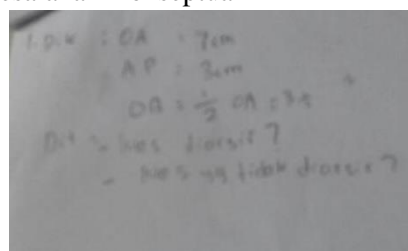 1. Dik : OA = 7cm
AP = 3cm
OB = 1/2 OA = 3.5
Dit = - luas diarsir ?
- luas yg tidak diarsir ?